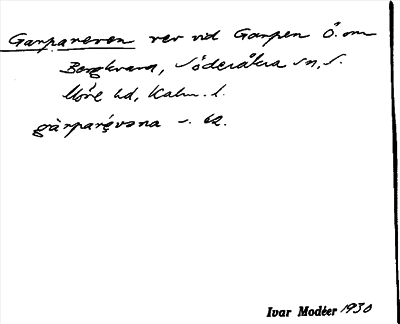 Garpareven rev vid Garpen Ö. om
Bergkvara, Söderåkra sn, S.
Möre hd, Kalm. l.
gàrparévəna
Ivar Modéer 1930